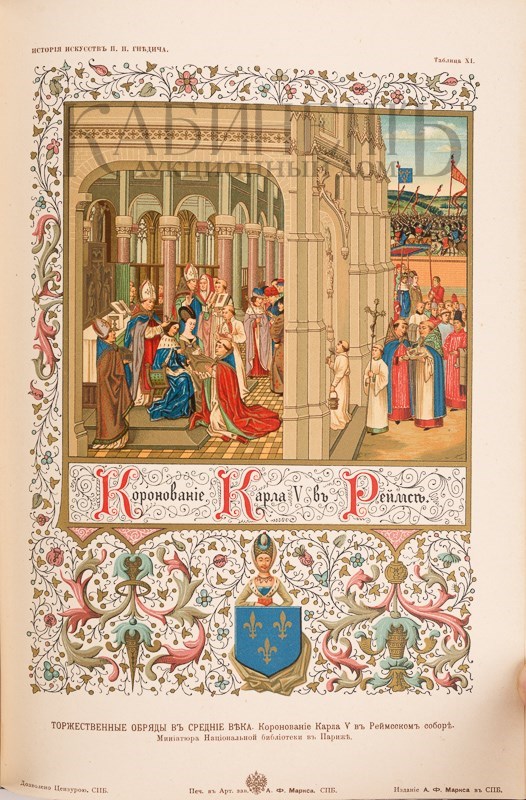 ИСТОРІЯ ИСКУССТВЪ П. П. ГНѢДИЧА.
Таблица XI.
КАБИНЕТЪ
АУКЦИОННЫЙ ДОМ
Коронованіе Карла V въ Реймсѣ.
ТОРЖЕСТВЕННЫЕ ОБРЯДЫ ВЪ СРЕДНІЕ ВѢКА. Коронованіе Карла V въ Реймсскомъ соборѣ.
Миніатюра Національной библіотеки въ Парижѣ.
Дозволена Цензурою, СПБ.
Печ. въ Арт. зав. А. Ф. Маркса, СПБ.
Изданіе А. Ф. Маркса въ СПБ.